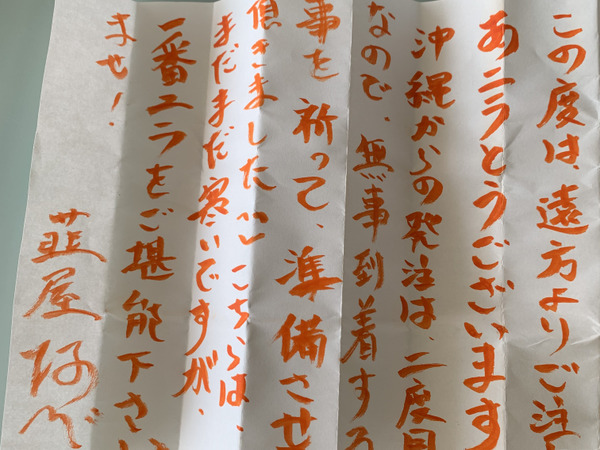 この度は、遠方よりご注
あニラとうございます
沖縄からの発注は、二度目
なので、無事到着する
事を祈って、準備させ
頂きました こちらは、
まだまだ寒いですが、
一番ニラをご堪能下さい
ませ!
韮屋